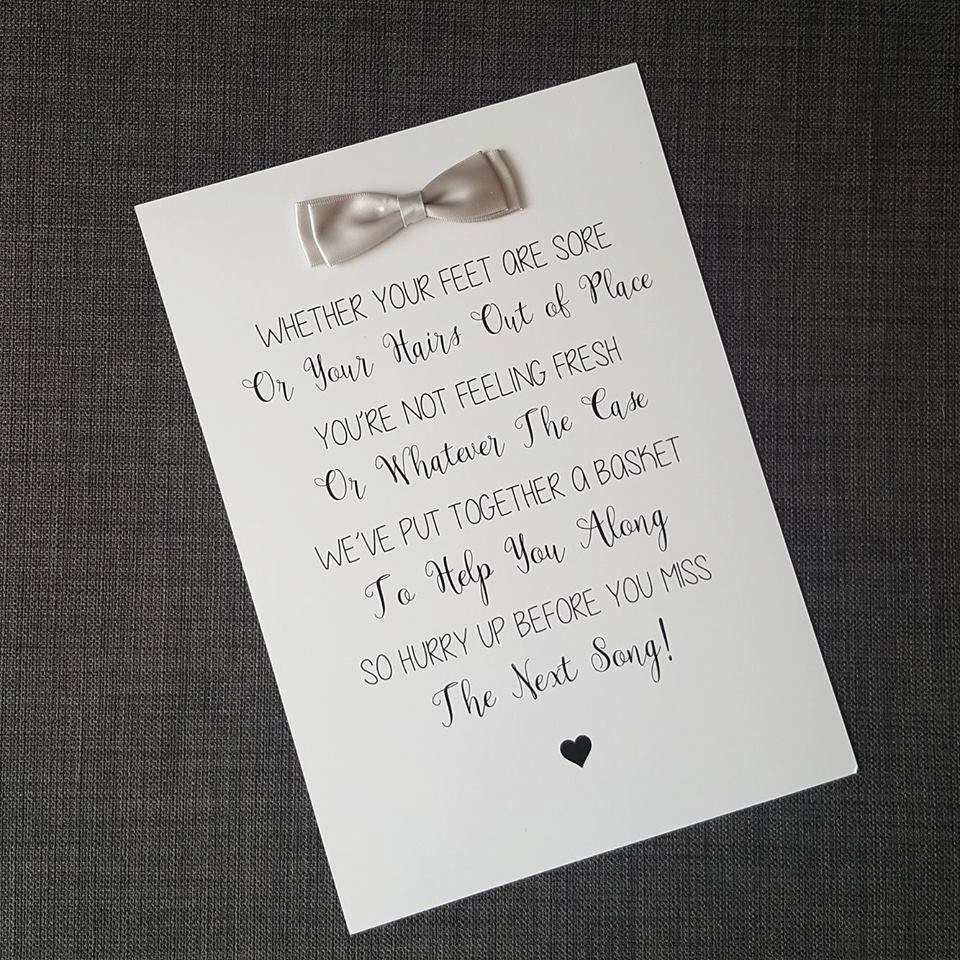 WHETHER YOUR FEET ARE SORE
Or Your Hairs Out of Place
YOU'RE NOT FEELING FRESH
Or Whatever The Case
WE'VE PUT TOGETHER A BASKET
To Help You Along
SO HURRY UP BEFORE YOU MISS
The Next Song!